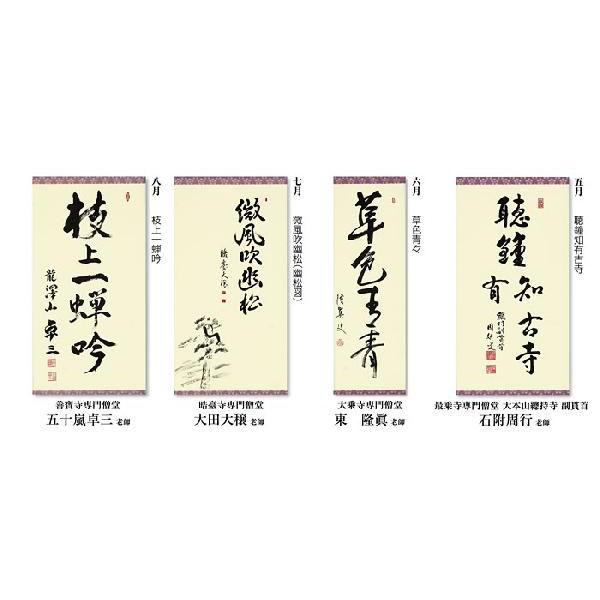 五月
聽鐘知有古寺
聽鐘知古寺有
最乗寺専門僧堂 大本山總持寺 副貫首
石附周行 老師
六月
草色青々
草色青青
大乗寺専門僧堂
東 隆眞 老師
七月
微風吹幽松(幽松図)
微風吹幽松
皓臺寺専門僧堂
大田大穰 老師
八月
枝上一蝉吟
枝上一蝉吟
龍澤山 卓三
善寳寺専門僧堂
五十嵐卓三 老師